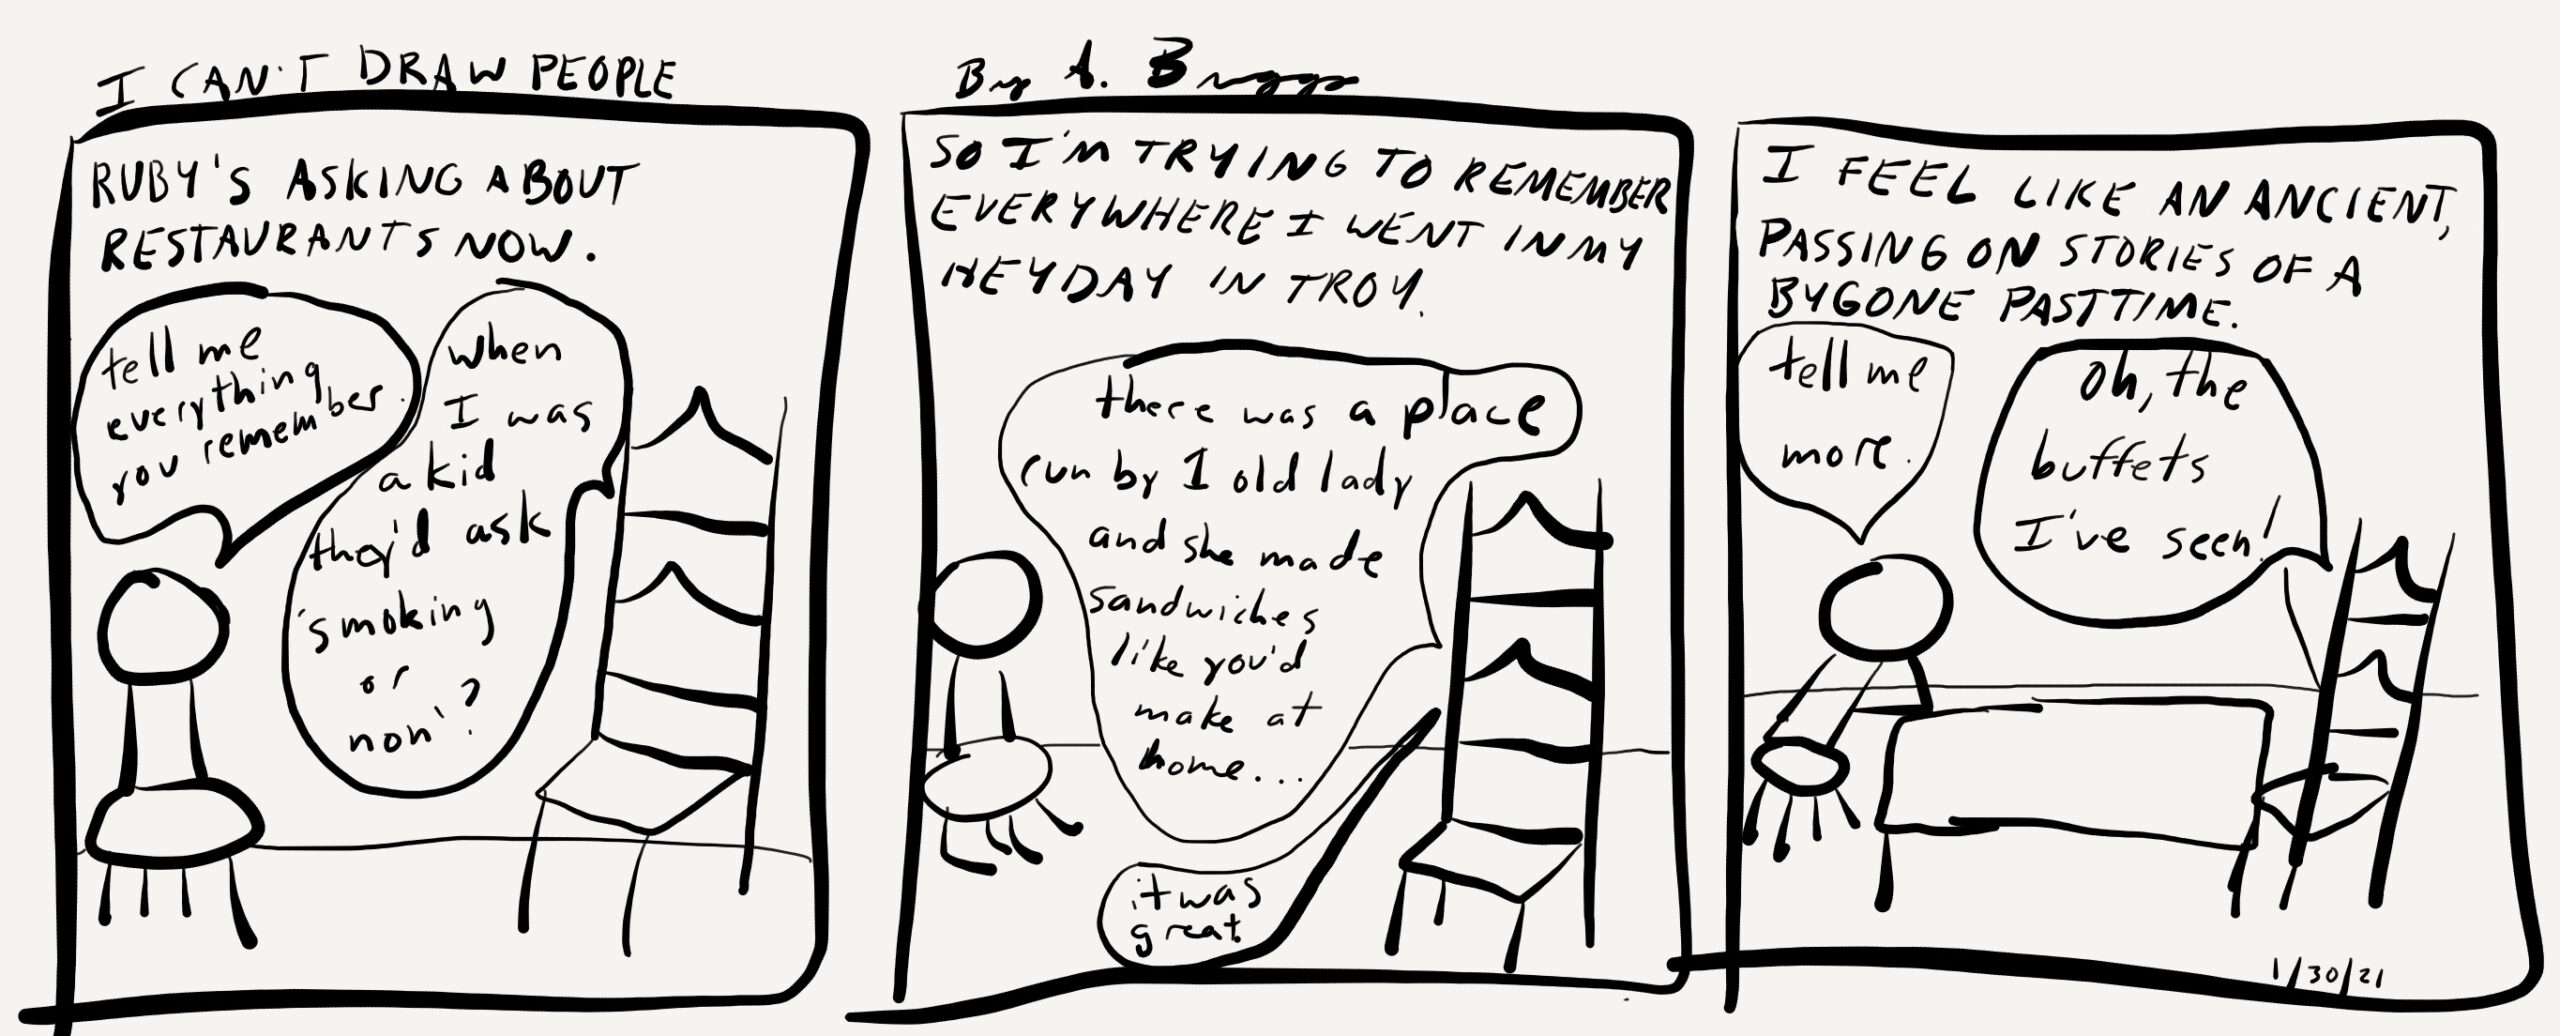 I CAN'T DRAW PEOPLE
By A. Briggs
RUBY'S ASKING ABOUT
RESTAURANTS NOW.
tell me
everything
you remember.
when
I was
a kid
they'd ask
'smoking
or
non'?
SO I'M TRYING TO REMEMBER
EVERYWHERE I WENT IN MY
HEYDAY IN TROY.
there was a place
run by 1 old lady
and she made
sandwiches
like you'd
make at
home...
it was
great.
I FEEL LIKE AN ANCIENT,
PASSING ON STORIES OF A
BYGONE PASTTIME.
tell me
more.
Oh, the
buffets
I've seen!
1/30/21